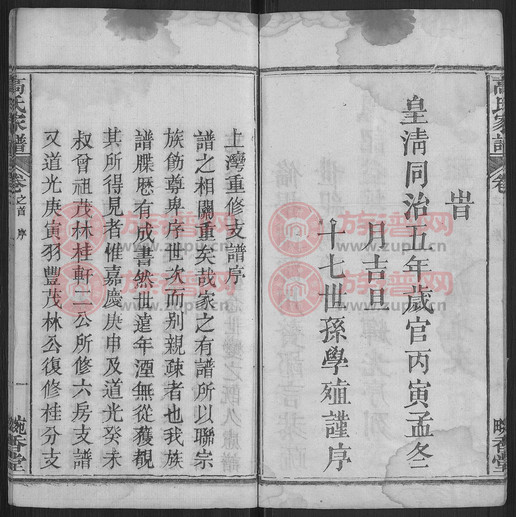 旹
皇清同治五年歲官丙寅孟冬
月吉旦
十七世孫學殖謹序
高氏家譜 卷之首 序 一 畹香堂
上灣重修支譜序
譜之相關重矣哉家之有譜所以聯宗
族飭尊卑序世次而别親疎者也我族
譜牒歷有成書然世遠年湮無從獲覩
其所得見者惟嘉慶庚申及道光癸未
叔曾祖茂林桂軒二公所修六房支譜
又道光庚寅羽豐茂林公復修桂分支
高氏家譜 卷之首 序 一 畹香堂
族谱网
zupu.cn